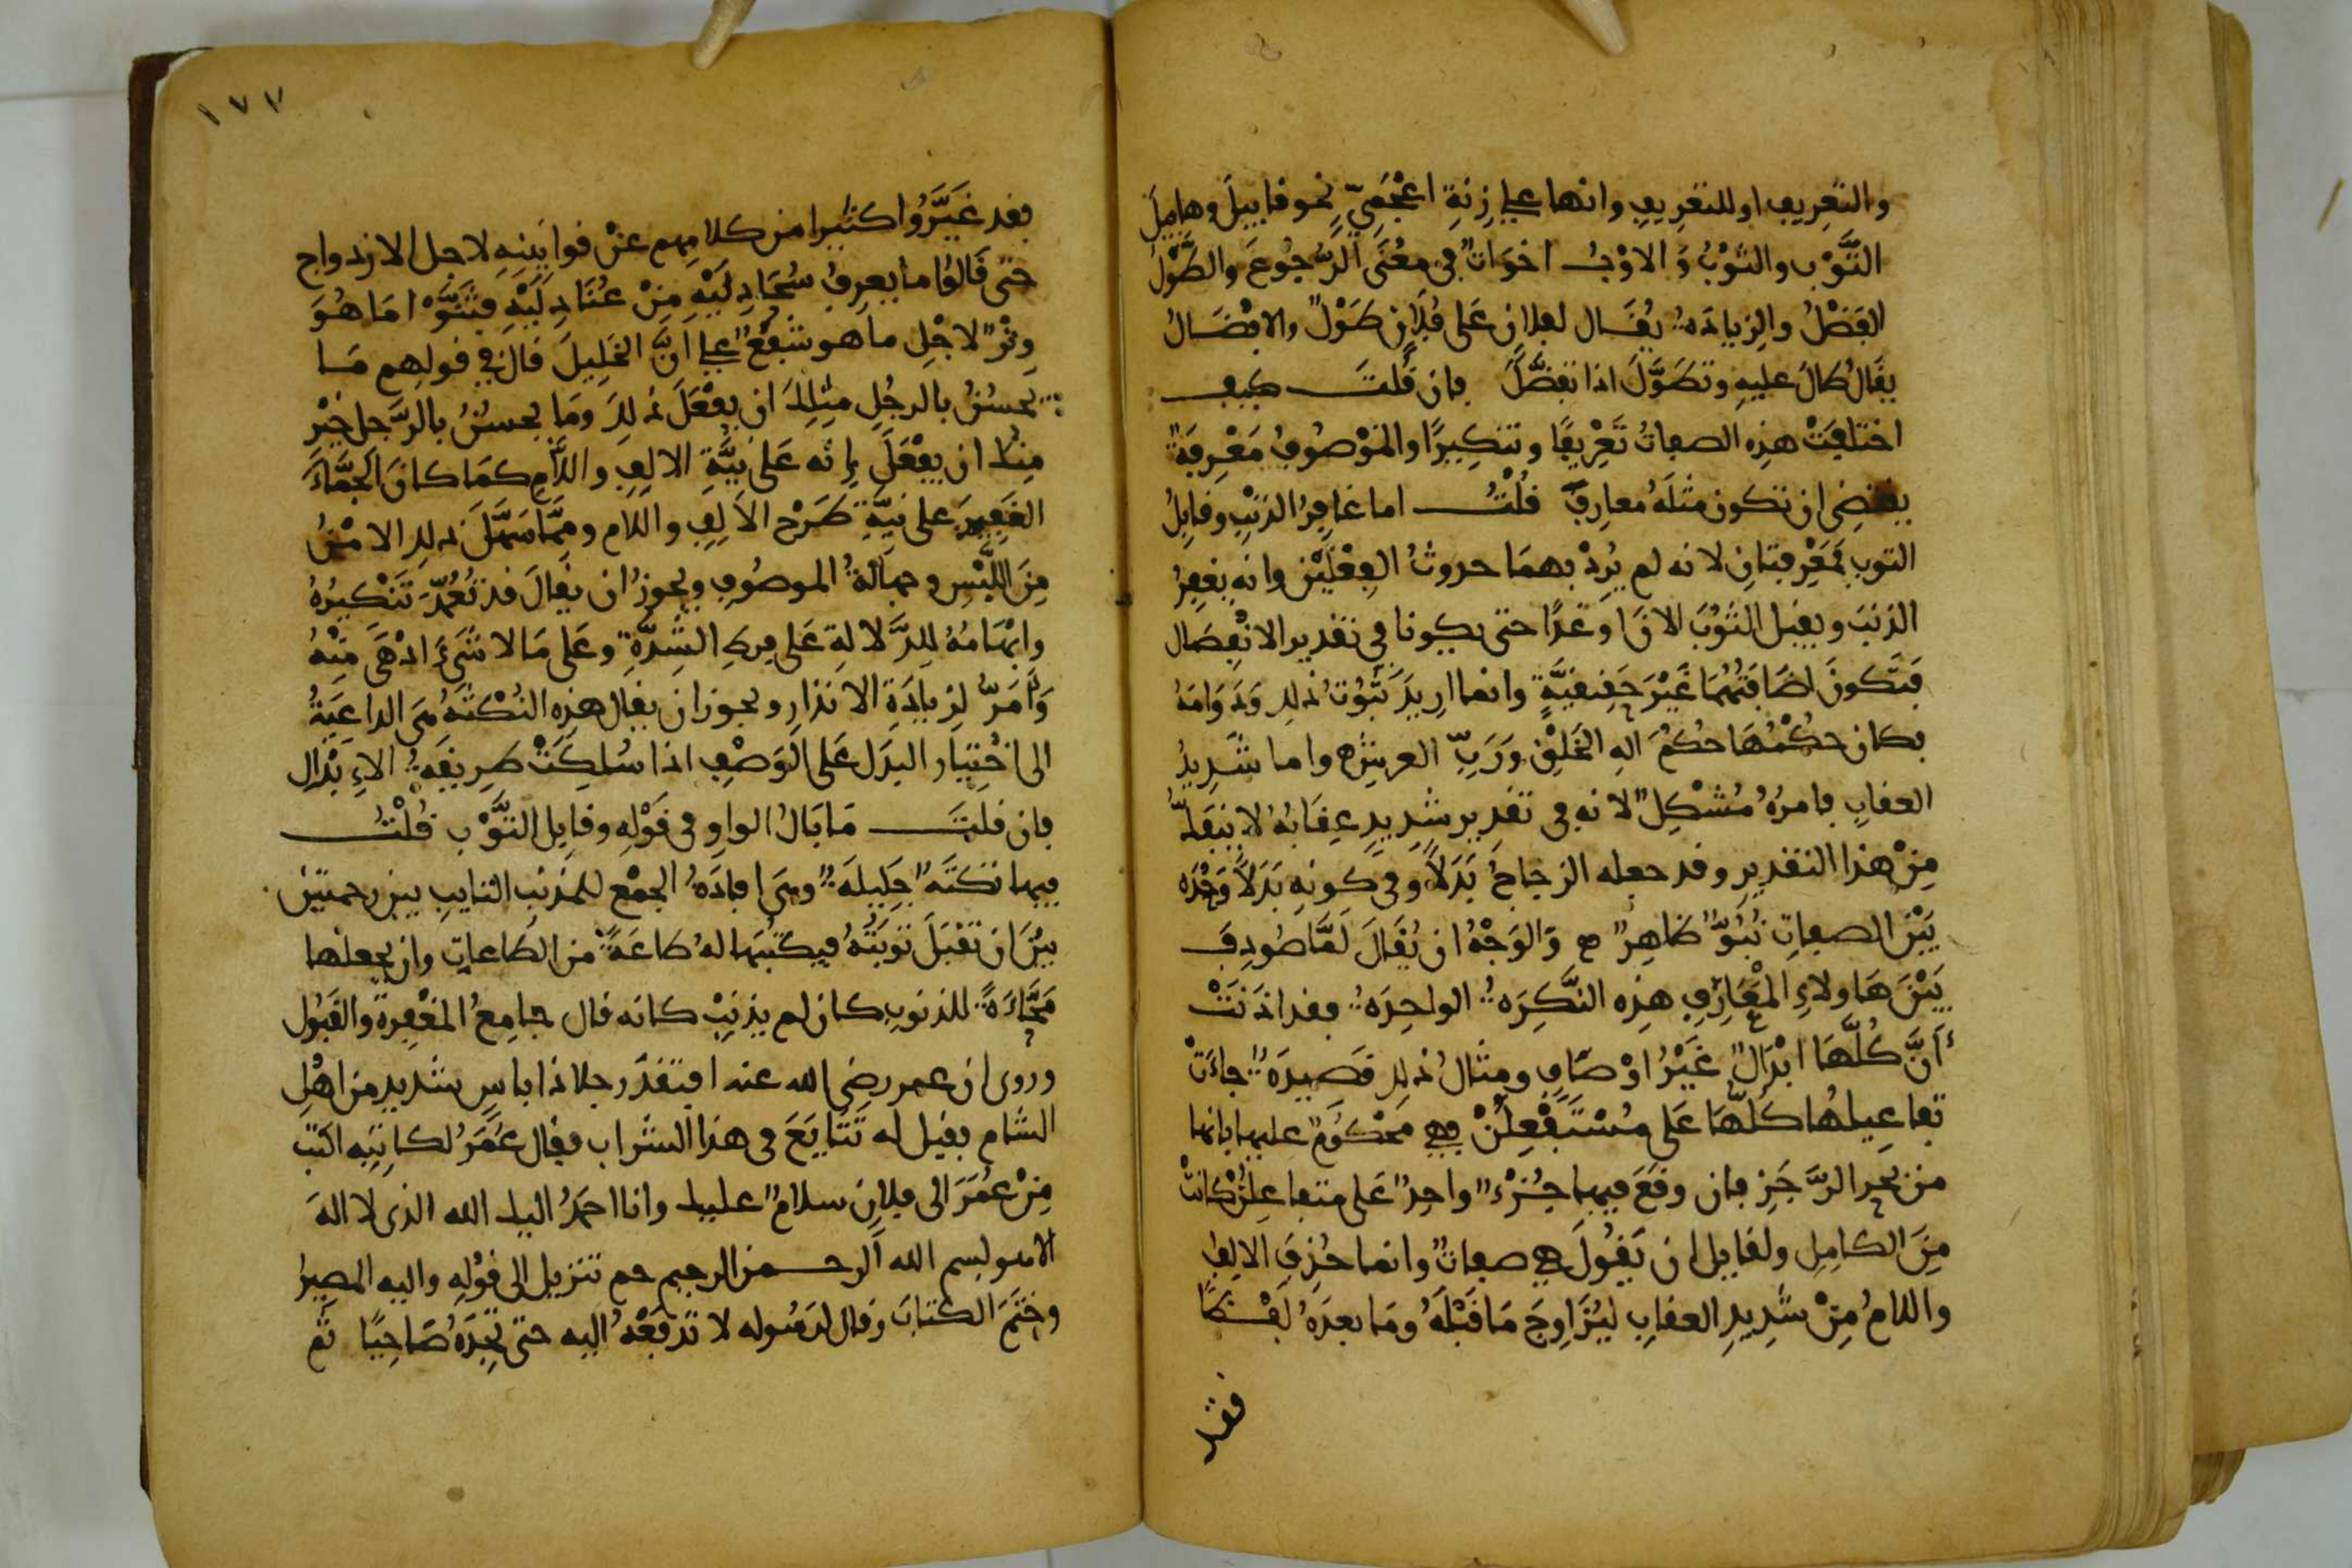 والتعريف او للتعريف وانها على زِنَةِ اعْجَمِيٍّ نحو قابيلَ وهابيلَ
التَّوْب والثَّوْبُ وَالاوْبُ اخوَاتٌ في مَعْنَى الرُّجُوعَ والطَّوْلُ
الفَضْلُ والزيادَةُ يُقَال لفلانٍ عَلى فُلَانٍ طَوْلٌ والافْضَالُ
يقَالُ طَالَ عليهِ وتَطَوَّلَ اذا تفضَّلَ فان قُلتَ كيف
اختلفَتْ هذِه الصفاتُ تَعْرِيفًا وتنكِيرًا والمَوْصُوفُ مَعْرِفَةٌ
يقتضِى ان تكون مثلَهُ معارِفَ قُلْتُ اما غَافِرُ الذنْبِ وقابِلُ
التوبِ فمَعْرِفتانِ لانه لم يُرِدْ بهمَا حدوثُ الفِعْلَيْنِ وانه يغفِرُ
الذنبَ ويقبل التوْبَ الانَ اوْ غَدًا حتى يكونا في تقدير الانْفِصَال
فتَكونَ اضَافَتُهُمَا غَيْرَ حَقِيقيَّةٍ وانما اريدَ ثُبُوتُ ذلك وَدَوَامَهُ
فكان حُكْمُهَا حكمُ اله الخَلْقِ وَرَبِّ العرشِ واما شَدِيدُ
العقابِ فامرُهُ مُشْكِلٌ لانه في تقدير شدِيدٍ عِقَابُهُ لا ينفَكُّ
مِنْ هذا التقديرِ وقد جعله الزجاجُ بَدَلًا وفي كونِهِ بَدَلًا وَحْدَه
بَيْنَ الصفاتِ نُبُوٌّ ظاهِرٌ وَالوَجْهُ ان يُقَالَ لَمَّا صُودِفَ
بَيْنَ هَاولاءِ المَعَارِفِ هذِه النَّكِرَةُ الواحِدَةُ فقد اذَنَتْ
أنَّ كُلَّهَا ابْدَالٌ غَيْرُ اوْصَافٍ ومِثَالُ ذلك قَصِيدَةٌ جاءَتْ
تفاعِيلهُا كُلُّهَا عَلى مُسْتَفْعِلُنْ فهي مَحْكُومٌ عليها بانها
من بحر الرَّجَزِ فان وقَعَ فيها جُزْءٌ واحِدٌ عَلى متفاعِلُنْ كانَتْ
مِنَ الكَامِلِ ولقايل ان يَقُولَ هي صفاتٌ وانما حُذِفَ الالِفُ
واللامُ مِنْ شَدِيدِ العقابِ لِيُزَاوِجَ مَا قَبْلَهُ ومَا بعدَهُ لَفْظًا
فقد
١٧٧
فقد غَيَّرُوا كثيرا من كلامِهِم عَنْ قوانينِهِ لاجل الازدواج
حتى قَالُوا ما يعرِفُ سُحَادِلَيْهِ مِنْ عُنَادِلَيْهِ فثَنَّوْا مَا هُوَ
وِتْرٌ لاجْلِ ما هو شَفْعٌ على انَّ الخَلِيلَ قالَ في قولِهم مَا
يحسُنُ بالرجُلِ مِثلِكَ ان يفْعَلَ ذلِكَ ومَا يحسنُ بالرَّجلِ خَيْرٍ
مِنكَ ان يفْعَلَ إنه عَلى نِيَّةِ الالِفِ واللَّامِ كمَا كانَ الجَمَّاءَ
الغَفِيرَ على نيَّةِ طَرْح الالِفِ واللام ومِمَّا سَهَّلَ ذلك الامْنُ
مِنَ اللَّبْسِ وجهالَةُ الموصُوفِ ويجوزُ ان يُقالَ قد تُعُمِّدَ تَنْكِيرُهُ
وابْهَامُهُ لِلدَّلَالَةِ عَلى فرطِ الشِّدَّةِ وعَلى مَا لا شَيْءَ ادْهَى مِنْهُ
وَأمَرُّ لِزيادَةِ الانذَارِ ويجوز ان يقال هذِهِ النُكْتَةُ هِيَ الداعِيَةُ
الى اخْتِيَارِ البدَل عَلى الوَصْفِ اذا سُلِكَتْ طريقَةُ الاءِبْدَالِ
فان قلتَ مَا بَالُ الواو في قَوْلِهِ وقَابِل التَّوْب قُلْتُ
فيها نكتَةٌ جَلِيلَةٌ وهيَ افادَةُ الجمْع للمذنب التايب بين رحمتين
بيْنَ ان تقْبَلَ توبَتَهُ فيكتُبَها لهُ طاعَةً من الطَاعاتِ وان يجعلها
مَحَّاءَةً للذنوبِ كان لم يذنِبْ كانه قال جامِعُ المغْفِرة والقَبُولِ
وروى ان عمر رضي الله عنه افتقدَ رجلا ذا باسٍ شديدٍ من اهْلِ
الشام فقيل له تَتَابَعَ في هذا الشراب فقال عُمَرُ لكاتِبِه اكتب
مِنْ عُمَرَ الى فلانٍ سلامٌ عليك وانا احمَدُ اليك الله الذى لا اله
الا هو بسم الله الرحمن الرحيم حم تنزيل الى قوْلِهِ واليه المصير
وختَمَ الكتابَ وقال لرسُوله لا تدْفَعْهُ اليه حتى تَجِدَهُ صَاحِيًا ثم